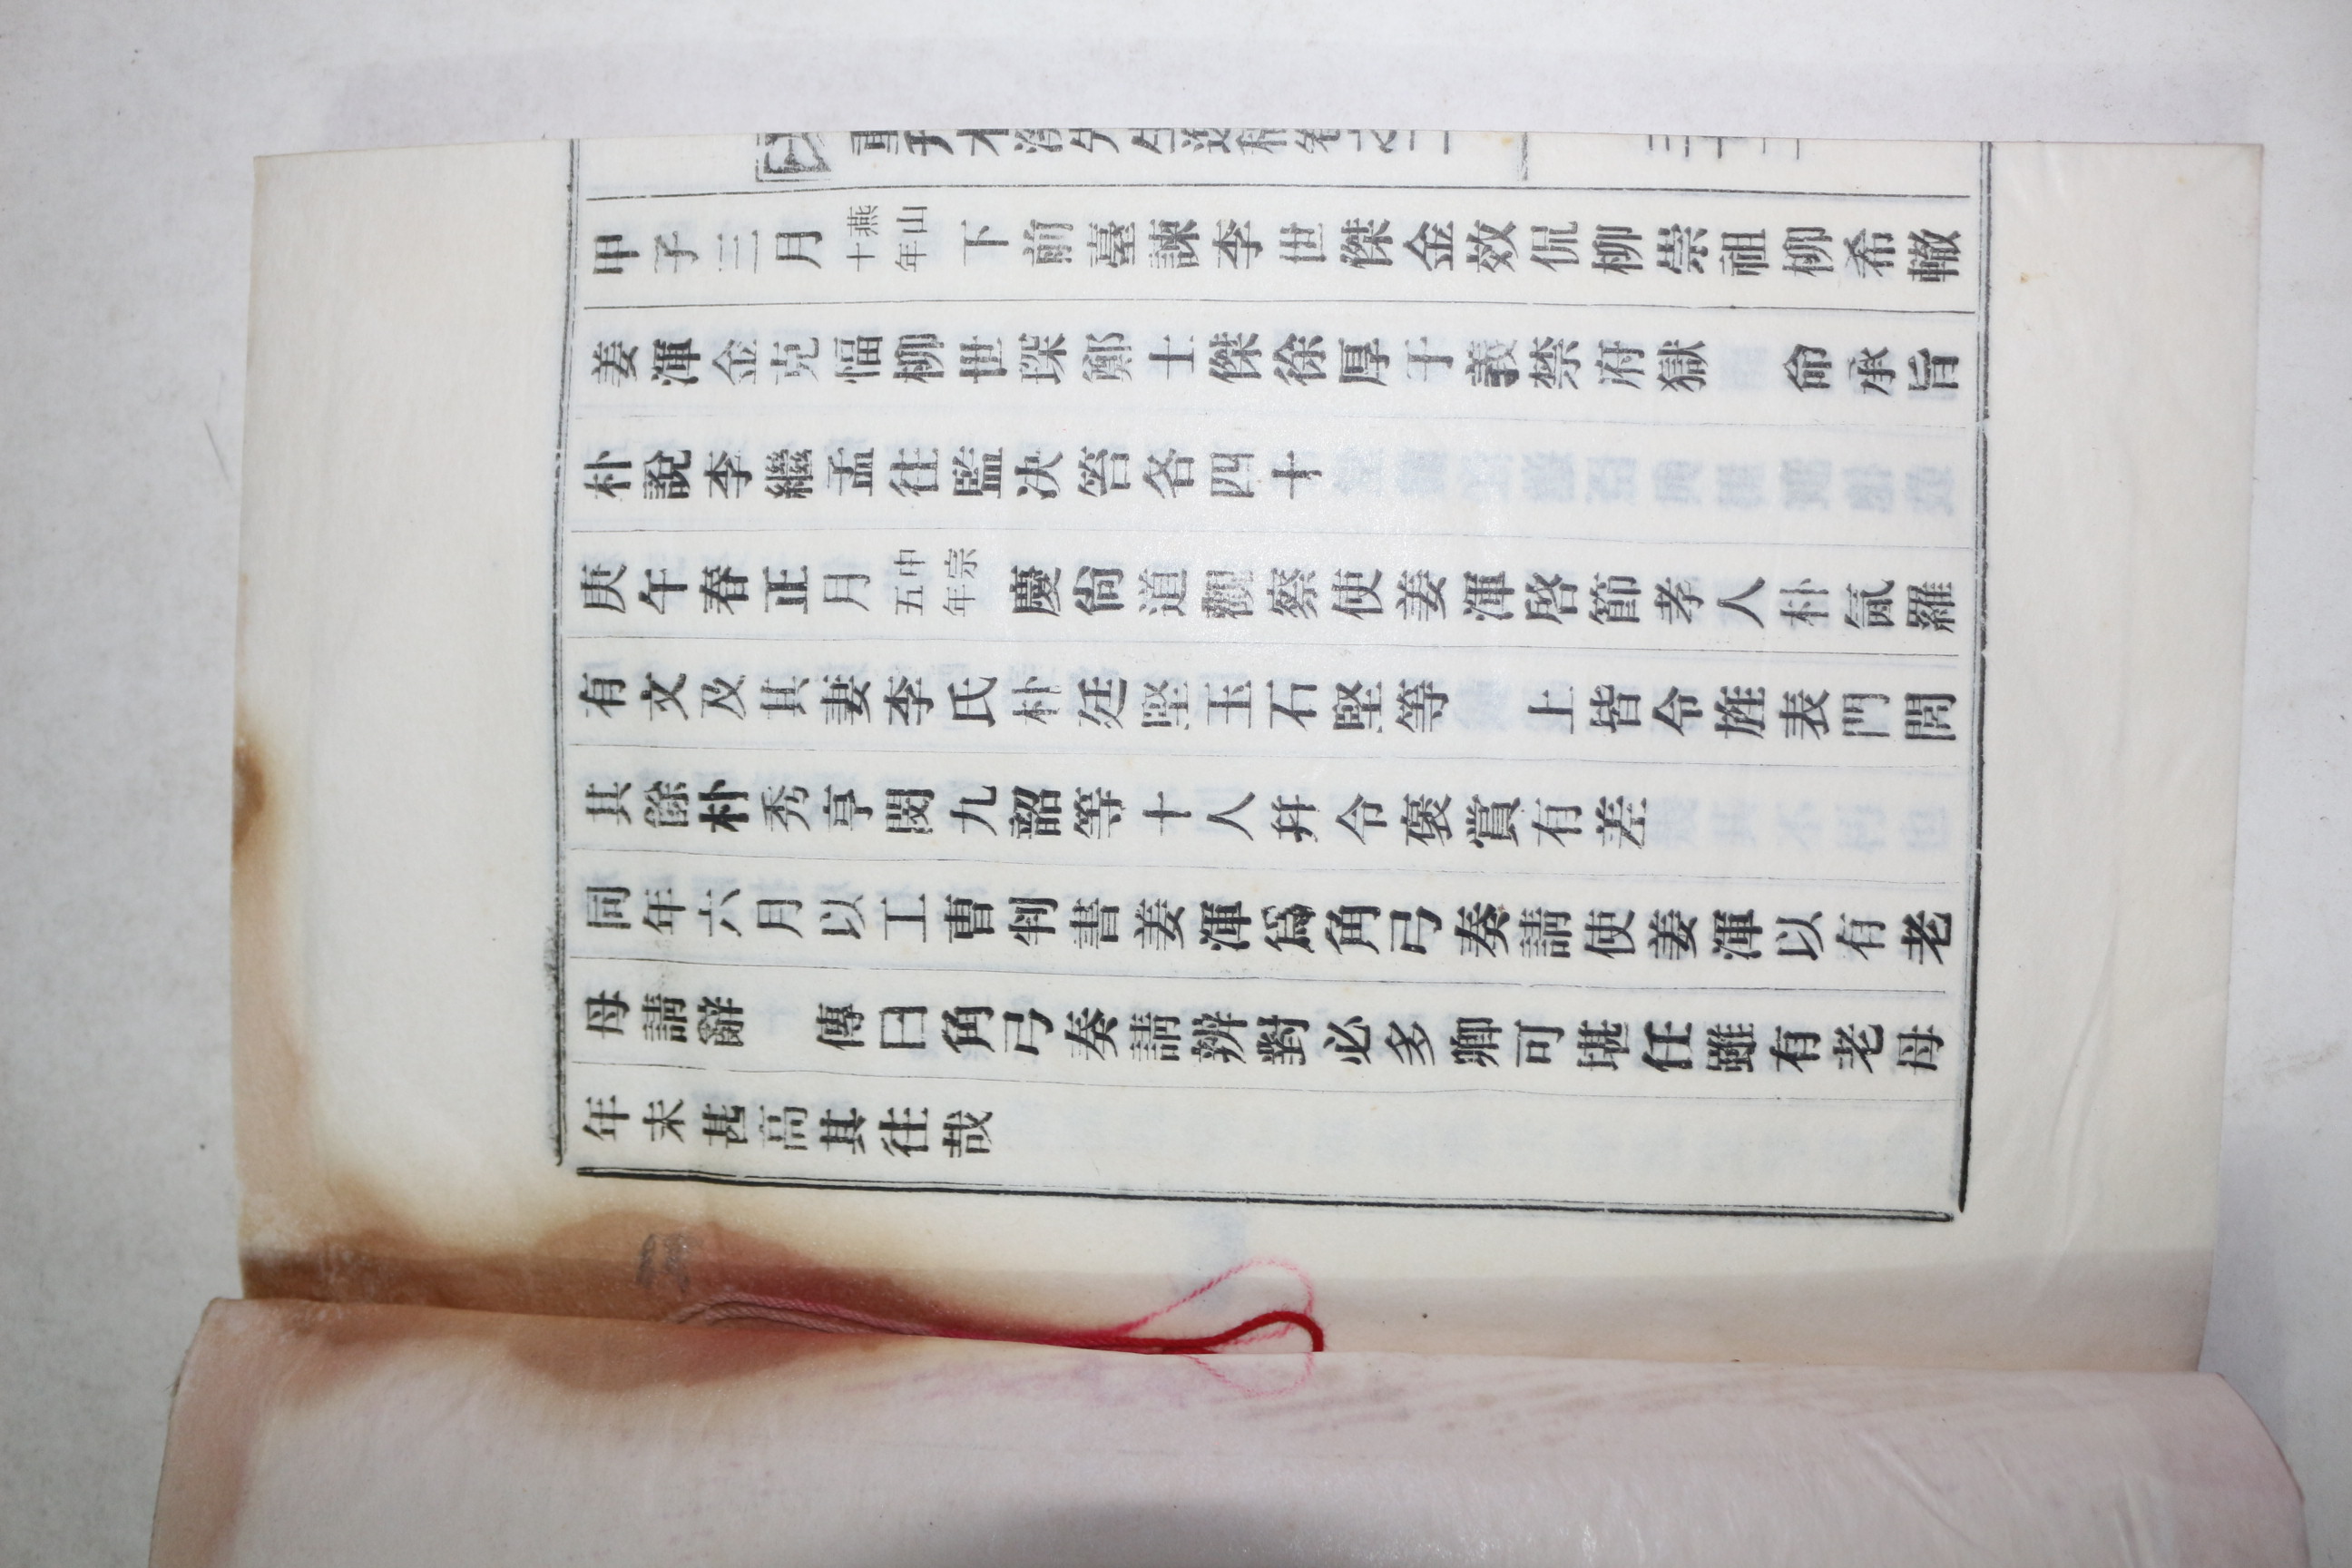 甲子三月燕山十年下前臺諫李世傑金效侃柳崇祖柳希轍
姜渾金克愊柳世琛鄭士傑徐厚于義禁府獄 命承旨
朴說李繼孟往監决笞各四十
庚午春正月中宗五年慶尙道觀察使姜渾啓節孝人朴氤羅
有文及其妻李氏朴廷堅玉石堅等 上皆令旌表門閭
其餘朴秀亨閔九韶等十人幷令褒賞有差
同年六月以工曹判書姜渾爲角弓奏請使姜渾以有老
母請辭 傳曰角弓奏請辨對必多卿可堪任雖有老母
年未甚高其往哉